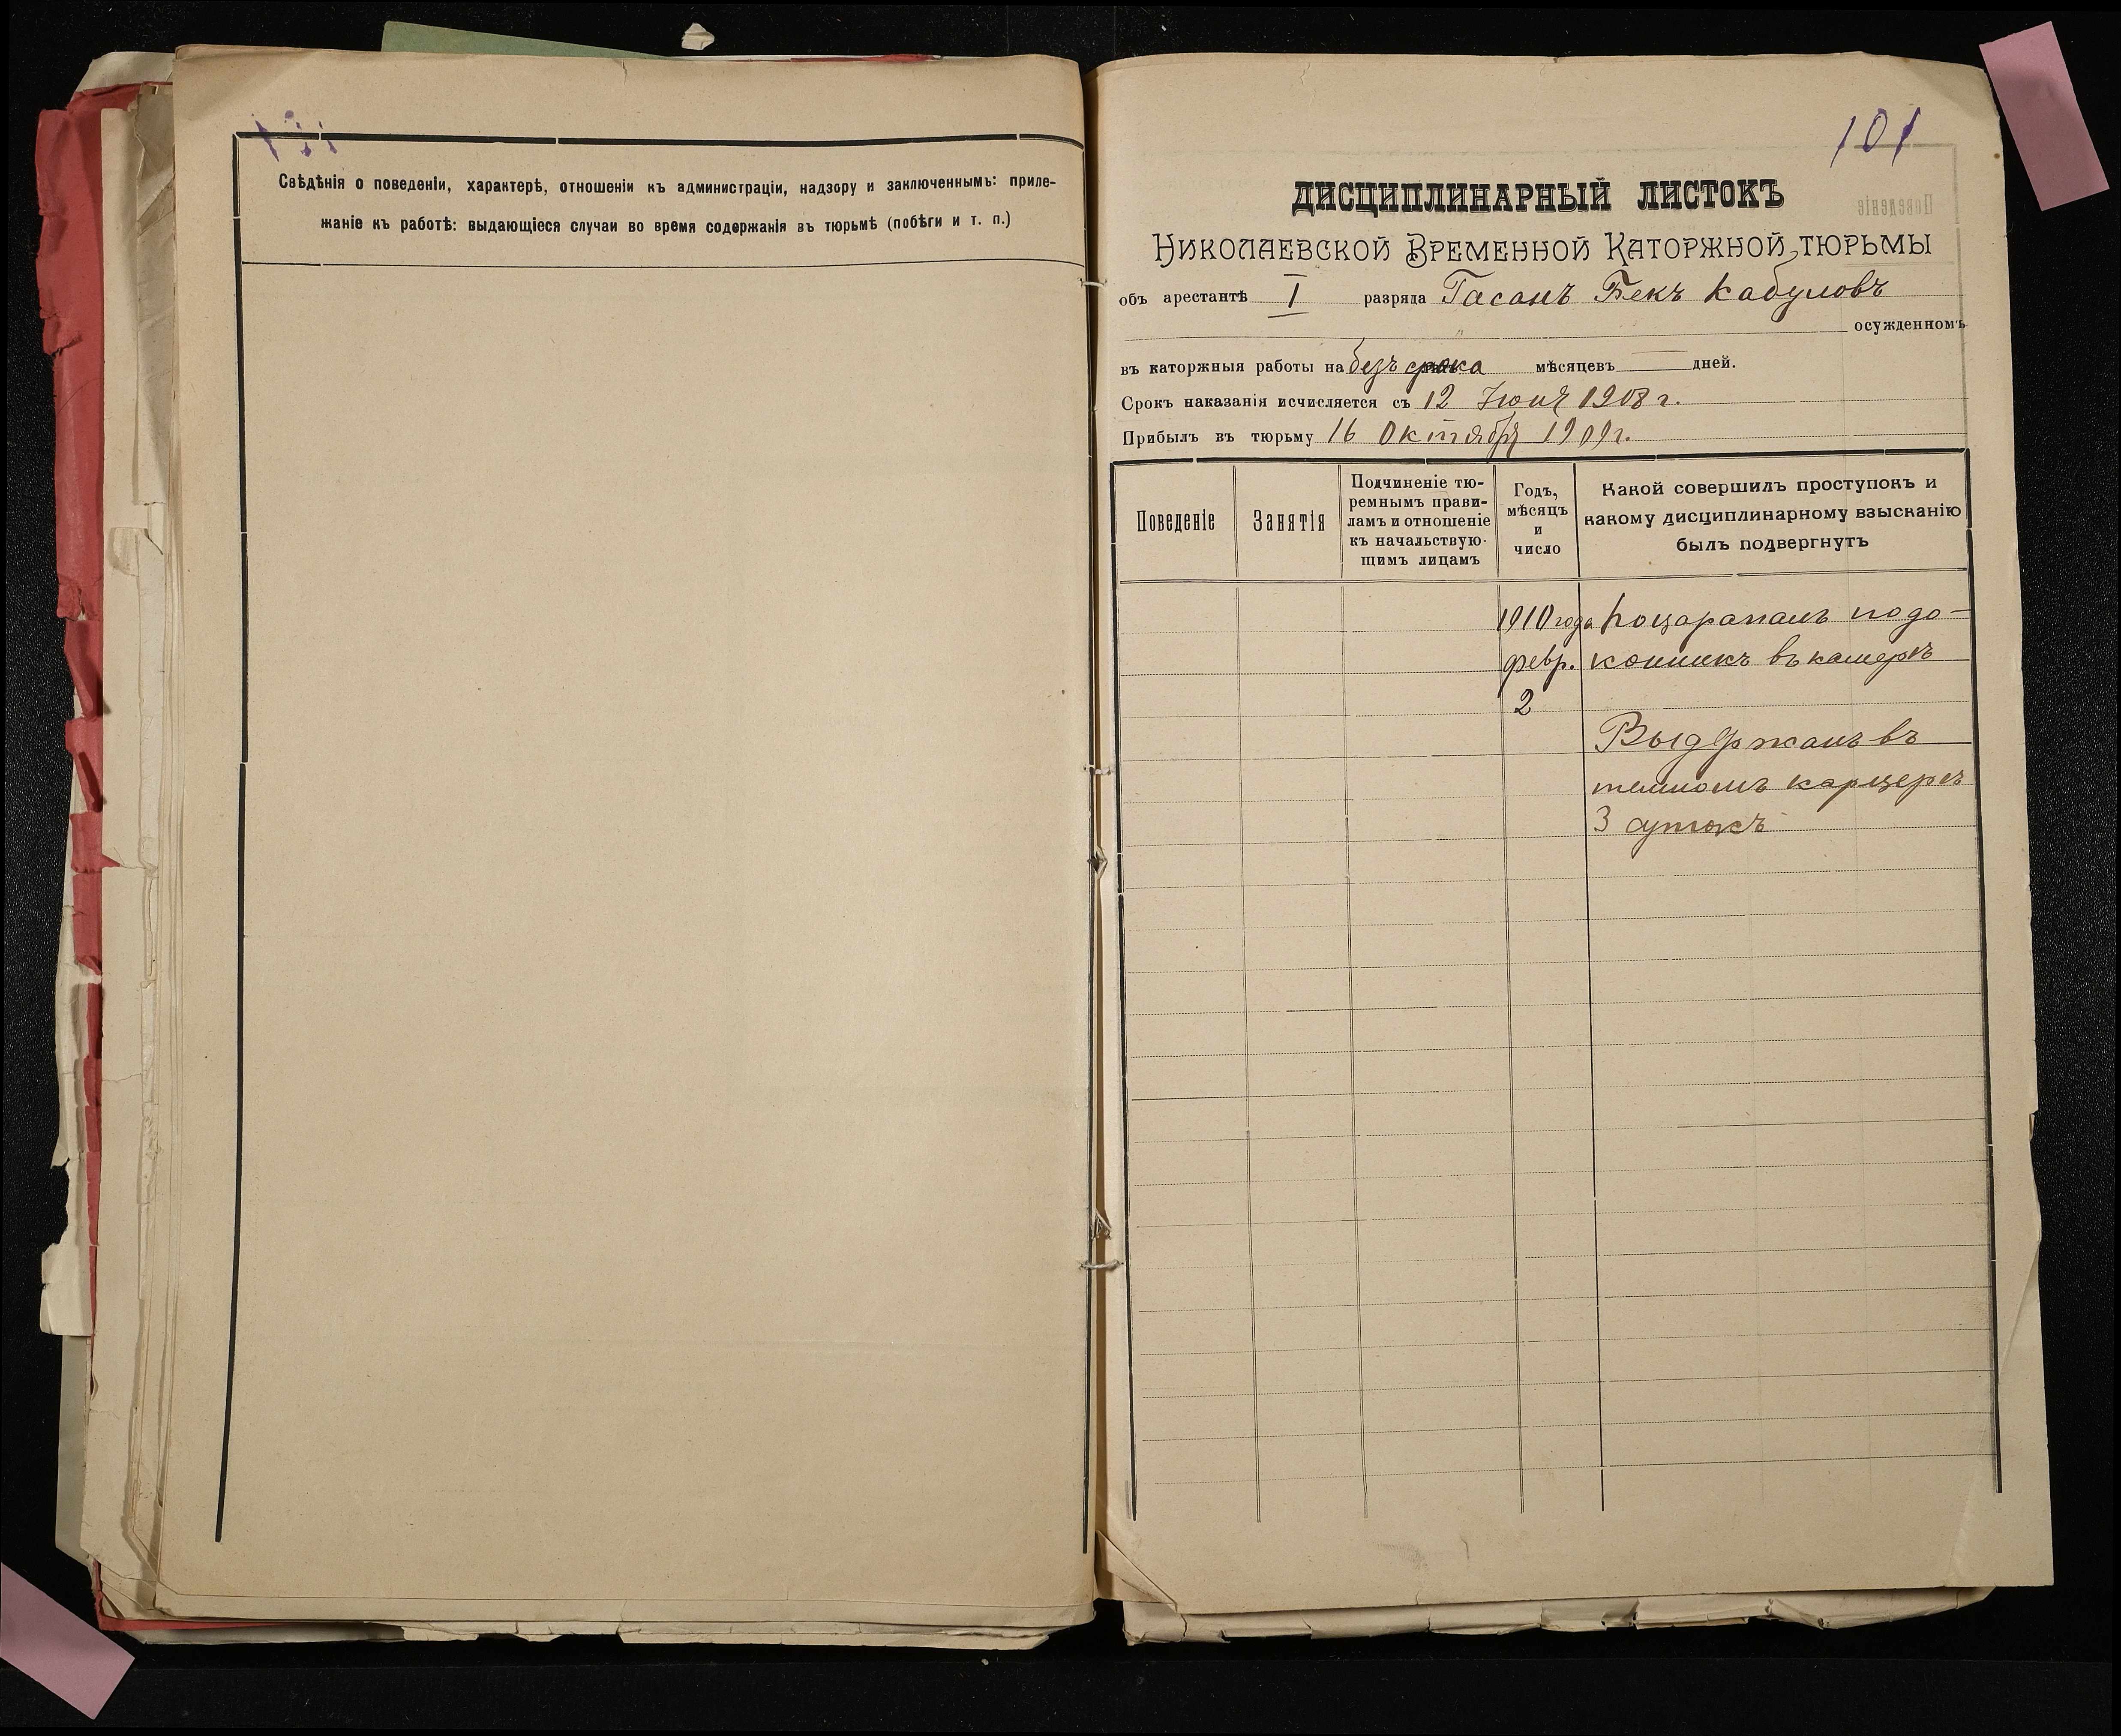 Свѣдѣнія о поведеніи, характерѣ, отношеніи къ администраціи, надзору и заключеннымъ: приле-
жаніе къ работѣ: выдающіеся случаи во время содержанія въ тюрьмѣ (побѣги и т. п.)
101
ДИСЦИПЛИНАРНЫЙ ЛИСТОКЪ
НИКОЛАЕВСКОЙ ВРЕМЕННОЙ КАТОРЖНОЙ ТЮРЬМЫ
объ арестантѣ I разряда Гасанъ Бекъ Кабуловъ
осужденномъ
въ каторжныя работы на безъ срока мѣсяцевъ — дней.
Срокъ наказанія исчисляется съ 12 Іюня 1908 г.
Прибылъ въ тюрьму 16 Октября 1909 г.
Поведеніе
Занятія
Подчиненіе тю-
ремнымъ прави-
ламъ и отношеніе
къ начальствую-
щимъ лицамъ
Годъ,
мѣсяцъ
и
число
Какой совершилъ проступокъ и
какому дисциплинарному взысканію
былъ подвергнутъ
1910 года Поцарапалъ подо-
февр. конникъ въ камерѣ
2
Выдержанъ въ
темномъ карцерѣ
3 сутокъ